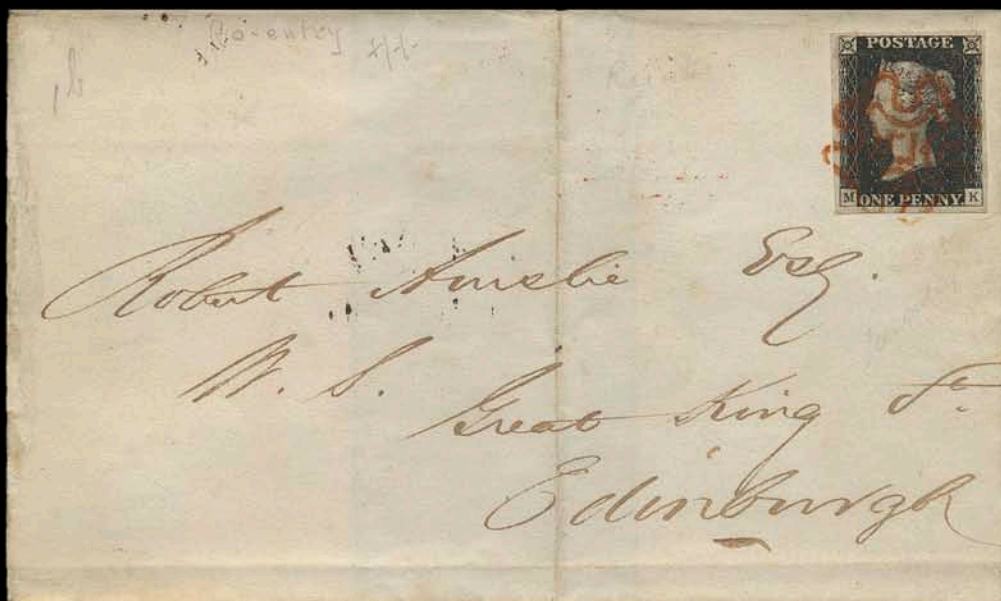 Re-entry
POSTAGE
M ONE PENNY K
Robert Ainslie Esq.
W. S.
Great King St.
Edinburgh